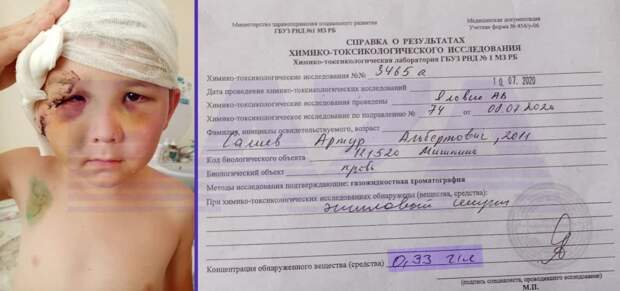 Министерство здравоохранения социального развития
ГБУЗ РНД №1 МЗ РБ
Медицинская документация
Учетная форма № 454/у-06
СПРАВКА О РЕЗУЛЬТАТАХ
ХИМИКО-ТОКСИКОЛОГИЧЕСКОГО ИССЛЕДОВАНИЯ
Химико-токсикологическая лаборатория ГБУЗ РНД № 1 МЗ РБ
Химико-токсикологические исследования №№ 3465а
Дата проведения химико-токсикологических исследований 10.07.2020
Химико-токсикологические исследования проведены
Химико-токсикологическое исследование по направлению № 74 от
Фамилия, инициалы освидетельствуемого, возраст
Артур Альбертович, 2011
Код биологического объекта
Биологический объект кровь
Методы исследования подтверждающие: газожидкостная хроматография
При химико-токсикологических исследованиях обнаружены (вещества, средства):
этиловый спирт
Концентрация обнаруженного вещества (средства) 0,33 г/л
(подпись специалиста, проводившего исследования)
М.П.